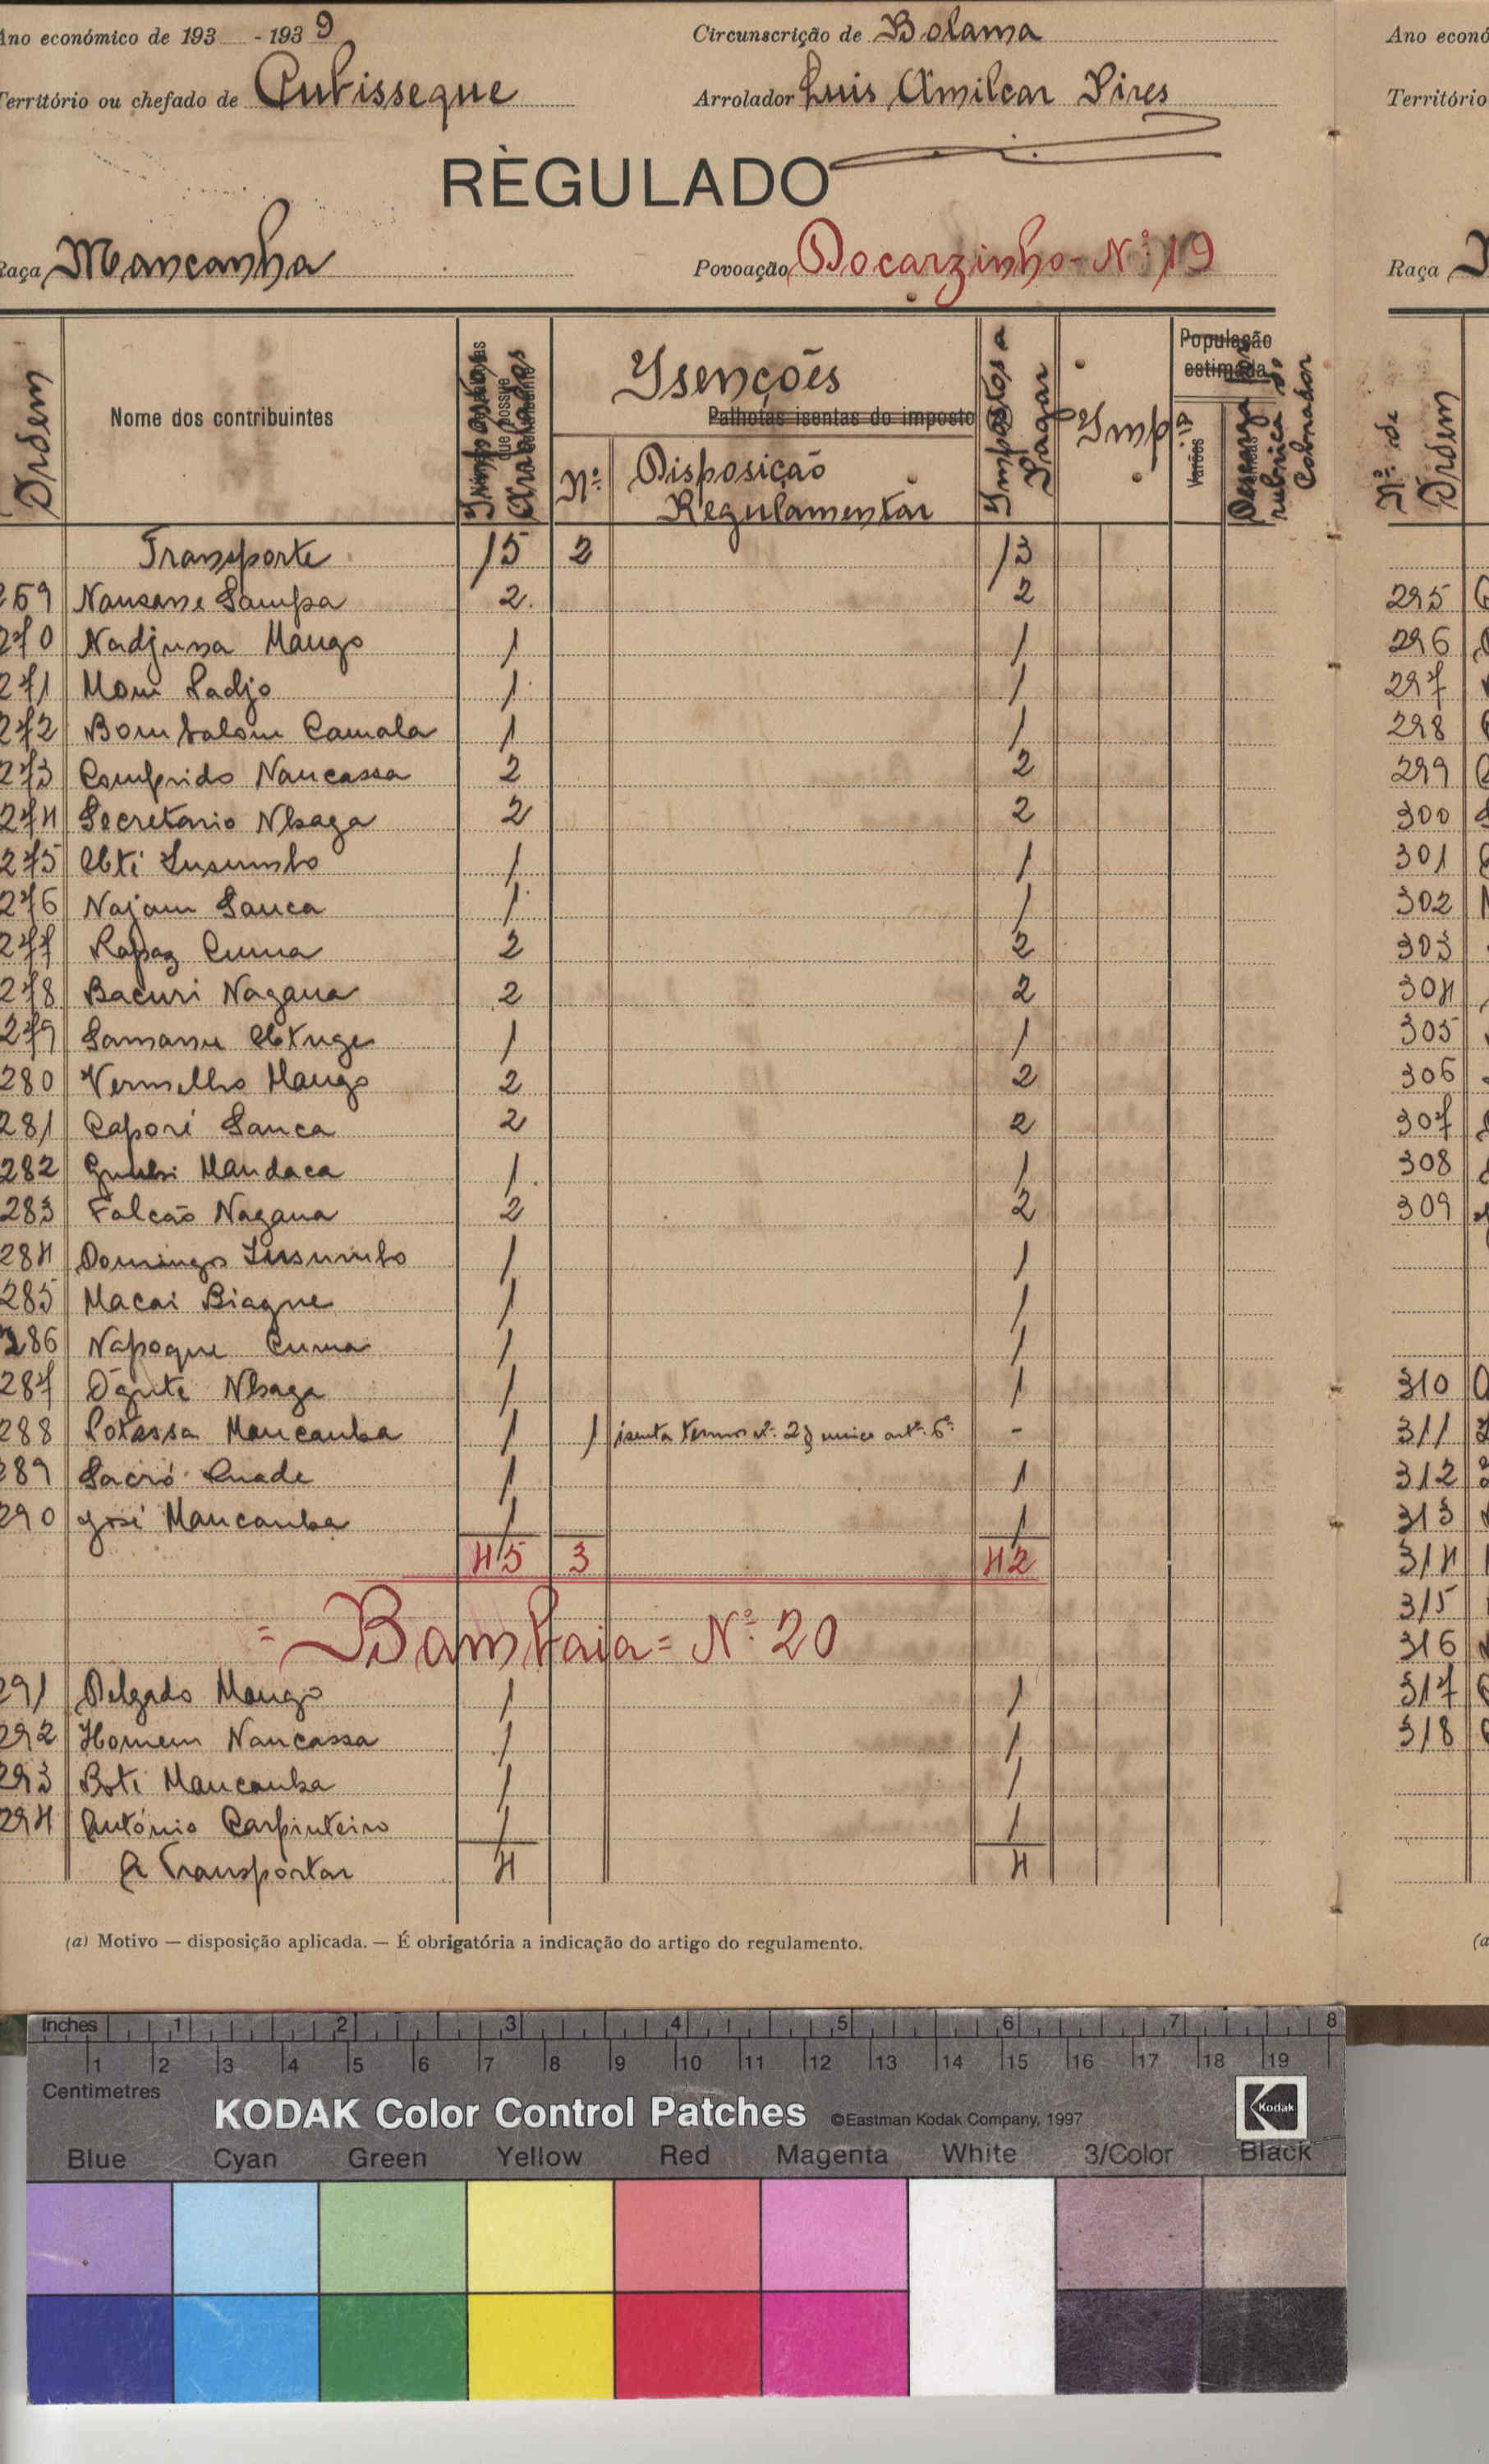 Ano económico de 193 - 1939 Circunscrição de Bolama
Território ou chefado de Cubisseque Arrolador Luis Amilcar Pires
RÈGULADO
Raça Mancanha Povoação Docarzinho - Nº 19
Ordem Nome dos contribuintes Impostos Arrolados Isenções Palhotas isentas do imposto Nº Disposição Regulamentar Impostos a Pagar Imp. População estimada Varões Descarga por rubrica do Cobrador
Transporte 15 2 13
269 Nansane Sampa 2 2
270 Nadjuna Mango 1 1
271 Moni Sadjo 1 1
272 Bombalom Camala 1 1
273 Comprido Nancassa 2 2
274 Secretario Nbaga 2 2
275 Obti Susumbo 1 1
276 Najam Sanca 1 1
277 Rapaz Cuma 2 2
278 Bacuri Nagana 2 2
279 Samanu 1 1
280 Vermelho Mango 2 2
281 Caporé Sanca 2 2
282 Mandaca 1 1
283 Falcão Nagana 2 2
284 Domingos Susumbo 1 1
285 Macai Biague 1 1
286 Napoque Cuma 1 1
287 Nbaga 1 1
288 Potassa Mancanha 1 1 isenta termos nº 2 § unico artº 6º -
289 Sacró Quade 1 1
290 José Mancanha 1 1
45 3 42
= Bambaia = Nº 20
291 Delgado Mango 1 1
292 Homem Nancassa 1 1
293 Boti Mancanha 1 1
294 António Carpinteiro 1 1
A Transportar 4 4
(a) Motivo — disposição aplicada. — É obrigatória a indicação do artigo do regulamento.
Ano econó
Território
Raça
Nº de Ordem
295
296
297
298
299
300
301
302
303
304
305
306
307
308
309
310
311
312
313
314
315
316
317
318
(a
Inches 1 2 3 4 5 6 7 8
1 2 3 4 5 6 7 8 9 10 11 12 13 14 15 16 17 18 19
Centimetres
KODAK Color Control Patches ©Eastman Kodak Company, 1997 Kodak
Blue Cyan Green Yellow Red Magenta White 3/Color Black